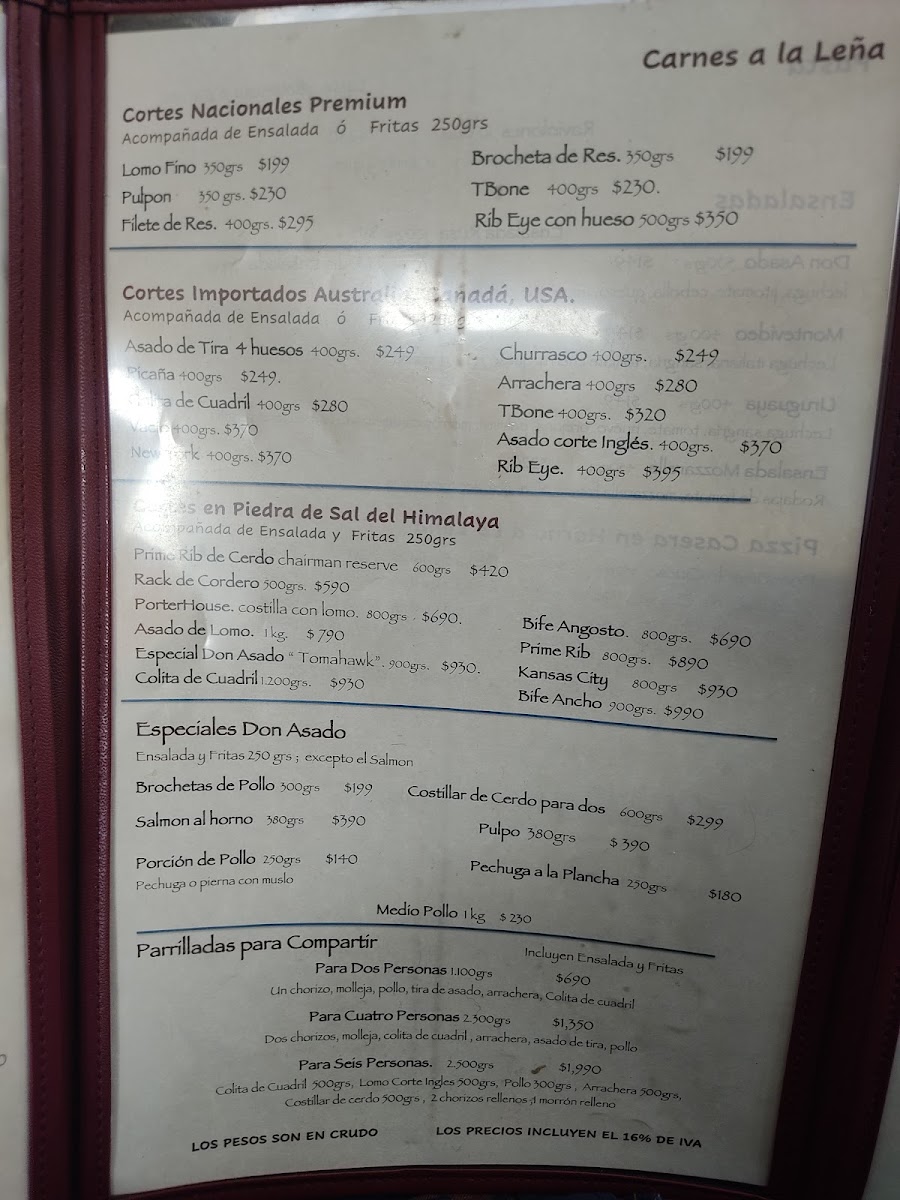 Carnes a la Leña
Cortes Nacionales Premium
Acompañada de Ensalada ó Fritas 250grs
Lomo Fino 350grs $199
Pulpon 350 grs. $230
Filete de Res. 400grs. $295
Brocheta de Res. 350grs $199
TBone 400grs $230.
Rib Eye con hueso 500grs $350
Cortes Importados Australia Canadá, USA.
Acompañada de Ensalada ó
Asado de Tira 4 huesos 400grs. $249
Picaña 400grs $249.
de Cuadril 400grs $280
400grs. $370
New York 400grs. $370
Churrasco 400grs. $249
Arrachera 400grs $280
TBone 400grs. $320
Asado corte Inglés. 400grs. $370
Rib Eye. 400grs $395
Cortes en Piedra de Sal del Himalaya
Acompañada de Ensalada y Fritas 250grs
Prime Rib de Cerdo chairman reserve 600grs $420
Rack de Cordero 500grs. $590
PorterHouse. costilla con lomo. 800grs . $690.
Asado de Lomo. 1 kg. $790
Especial Don Asado “ Tomahawk”. 900grs. $930.
Colita de Cuadril 1.200grs. $930
Bife Angosto. 800grs. $690
Prime Rib 800grs. $890
Kansas City 800grs $930
Bife Ancho 900grs. $990
Especiales Don Asado
Ensalada y Fritas 250 grs ; excepto el Salmon
Brochetas de Pollo 300grs $199
Salmon al horno 380grs $390
Porción de Pollo 250grs $140
Pechuga o pierna con muslo
Costillar de Cerdo para dos 600grs $299
Pulpo 380grs $390
Pechuga a la Plancha 250grs $180
Medio Pollo 1 kg $230
Parrilladas para Compartir
Incluyen Ensalada y Fritas
Para Dos Personas 1.100grs $690
Un chorizo, molleja, pollo, tira de asado, arrachera, Colita de cuadril
Para Cuatro Personas 2.300grs $1,350
Dos chorizos, molleja, colita de cuadril , arrachera, asado de tira, pollo
Para Seis Personas. 2.500grs $1,990
Colita de Cuadril 500grs, Lomo Corte Ingles 500grs, Pollo 300grs , Arrachera 500grs,
Costillar de cerdo 500grs , 2 chorizos rellenos ;1 morrón relleno
LOS PESOS SON EN CRUDO
LOS PRECIOS INCLUYEN EL 16% DE IVA